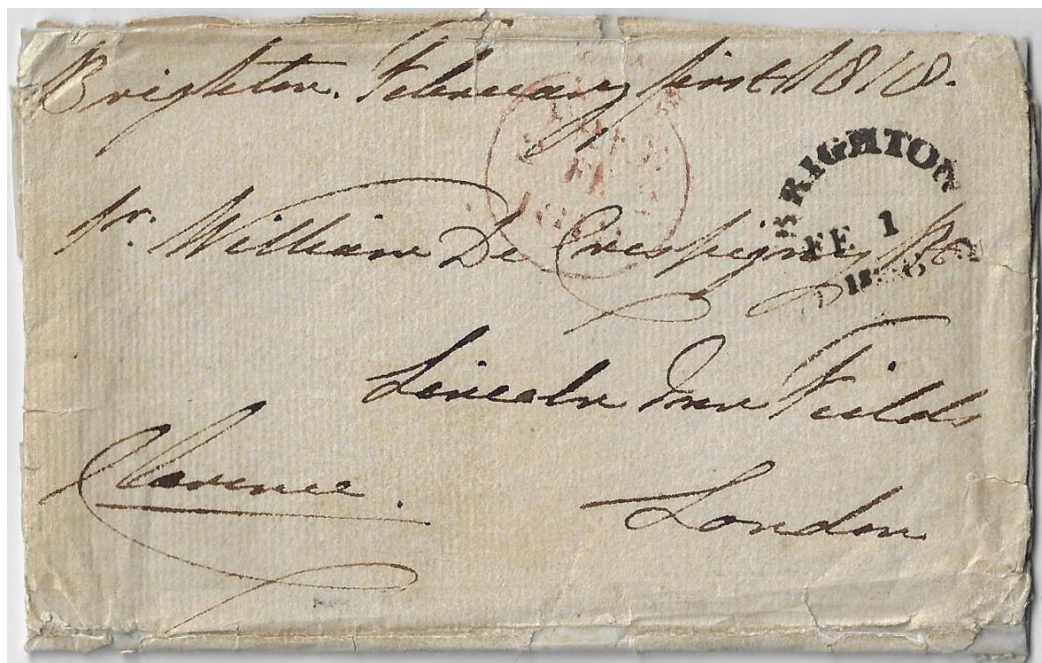 Brighton. February first 1818.
BRIGHTON
FE 1
1818
Sr. William De Crespigny Bt
Lincoln Inn Fields
Clarence.
London